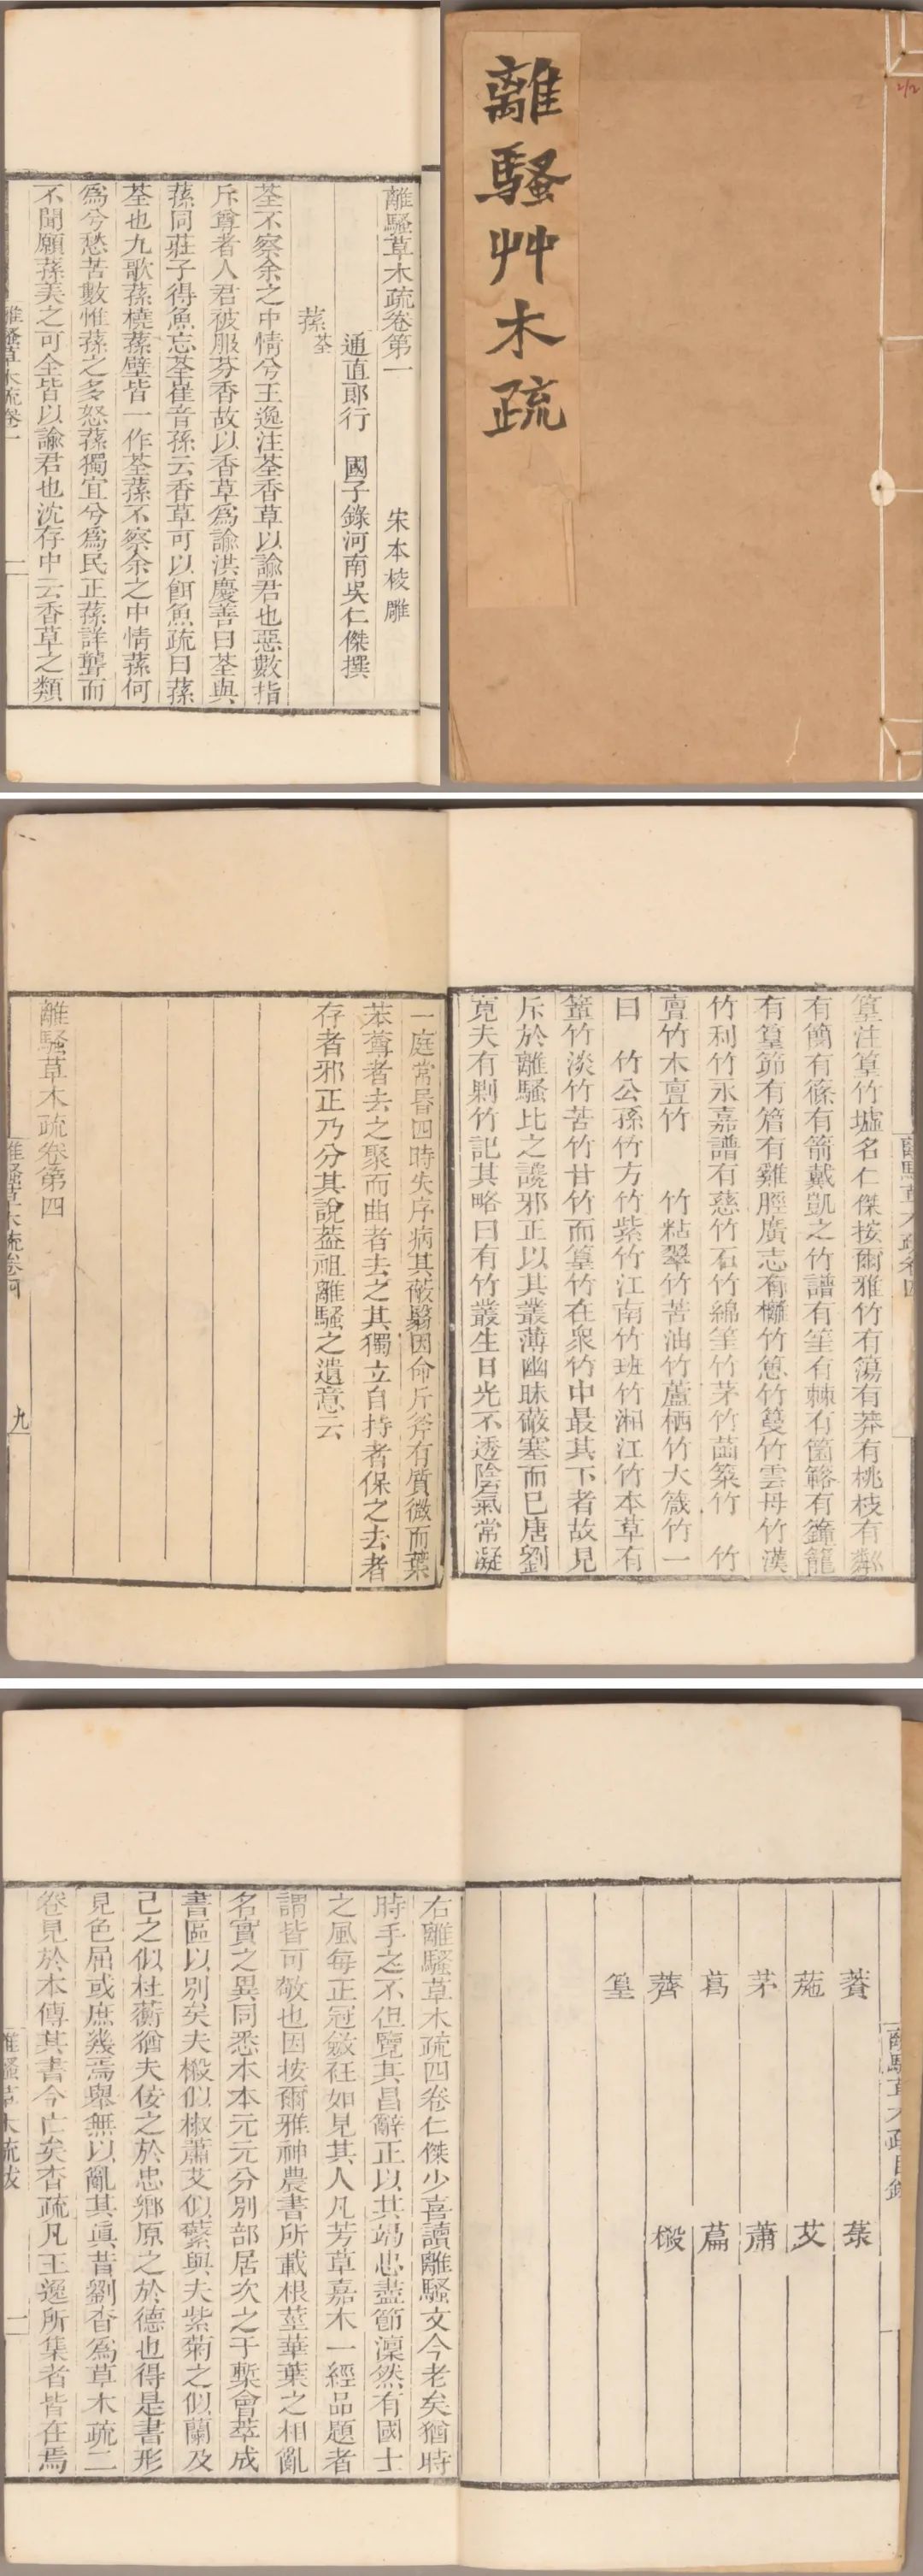 離騷艸木疏
2/2
離騷草木疏卷第一 宋本校雕
通直郎行 國子錄河南吳仁傑撰
蓀荃
荃不察余之中情兮王逸注荃香草以諭君也惡數指
斥尊者人君被服芬香故以香草爲諭洪慶善曰荃與
蓀同莊子得魚忘荃崔音孫云香草可以餌魚疏曰蓀
荃也九歌蓀橈蓀壁皆一作荃蓀不察余之中情蓀何
爲兮愁苦數惟蓀之多怒蓀獨宜兮爲民正蓀詳聾而
不聞願蓀美之可全皆以諭君也沈存中云香草之類
離騷草木疏卷一 一
離騷草木疏卷四
篁注篁竹墟名仁傑按爾雅竹有簜有莽有桃枝有鄰
有簡有篠有箭戴凱之竹譜有笙有棘有箘簵有䉶籠
有篁筯有箮有雞脛廣志有䉬竹䓗竹蔓竹雲母竹漢
竹利竹永嘉譜有慈竹石竹綿笙竹茅竹茁築竹 竹
亶竹木亶竹 竹粘翠竹苦油竹蘆栖竹大箴竹一
曰 竹公孫竹方竹紫竹江南竹班竹湘江竹本草有
䈽竹淡竹苦竹甘竹而篁竹在衆竹中最其下者故見
斥於離騷比之讒邪正以其叢薄幽昧蔽塞而已唐劉
寛夫有剿竹記其略曰有竹叢生日光不透陰氣常凝
一庭常昬四時失序病其蔽翳因命斤斧有質微而葉
苯䔿者去之聚而曲者去之其獨立自持者保之去者
存者邪正乃分其說葢祖離騷之遺意云
離騷草木疏卷第四
離騷草木疏卷四 九
離騷草木疏目錄
薋 菉
葹 艾
茅 蕭
葛 萹
薺 樧
篁
右離騷草木疏四卷仁傑少喜讀離騷文今老矣猶時
時手之不但覽其昌辭正以其竭忠盡節凜然有國士
之風每正冠斂衽如見其人凡芳草嘉木一經品題者
謂皆可敬也因按爾雅神農書所載根莖華葉之相亂
名實之異同悉本本元元分別部居次之于槧會萃成
書區以別矣夫樧似椒蕭艾似蘩與夫紫菊之似蘭及
己之似杜蘅猶夫佞之於忠鄕原之於德也得是書形
見色屈或庶幾焉舉無以亂其眞昔劉杳爲草木疏二
卷見於本傳其書今亡矣杳疏凡王逸所集者皆在焉
離騷草木疏跋 一